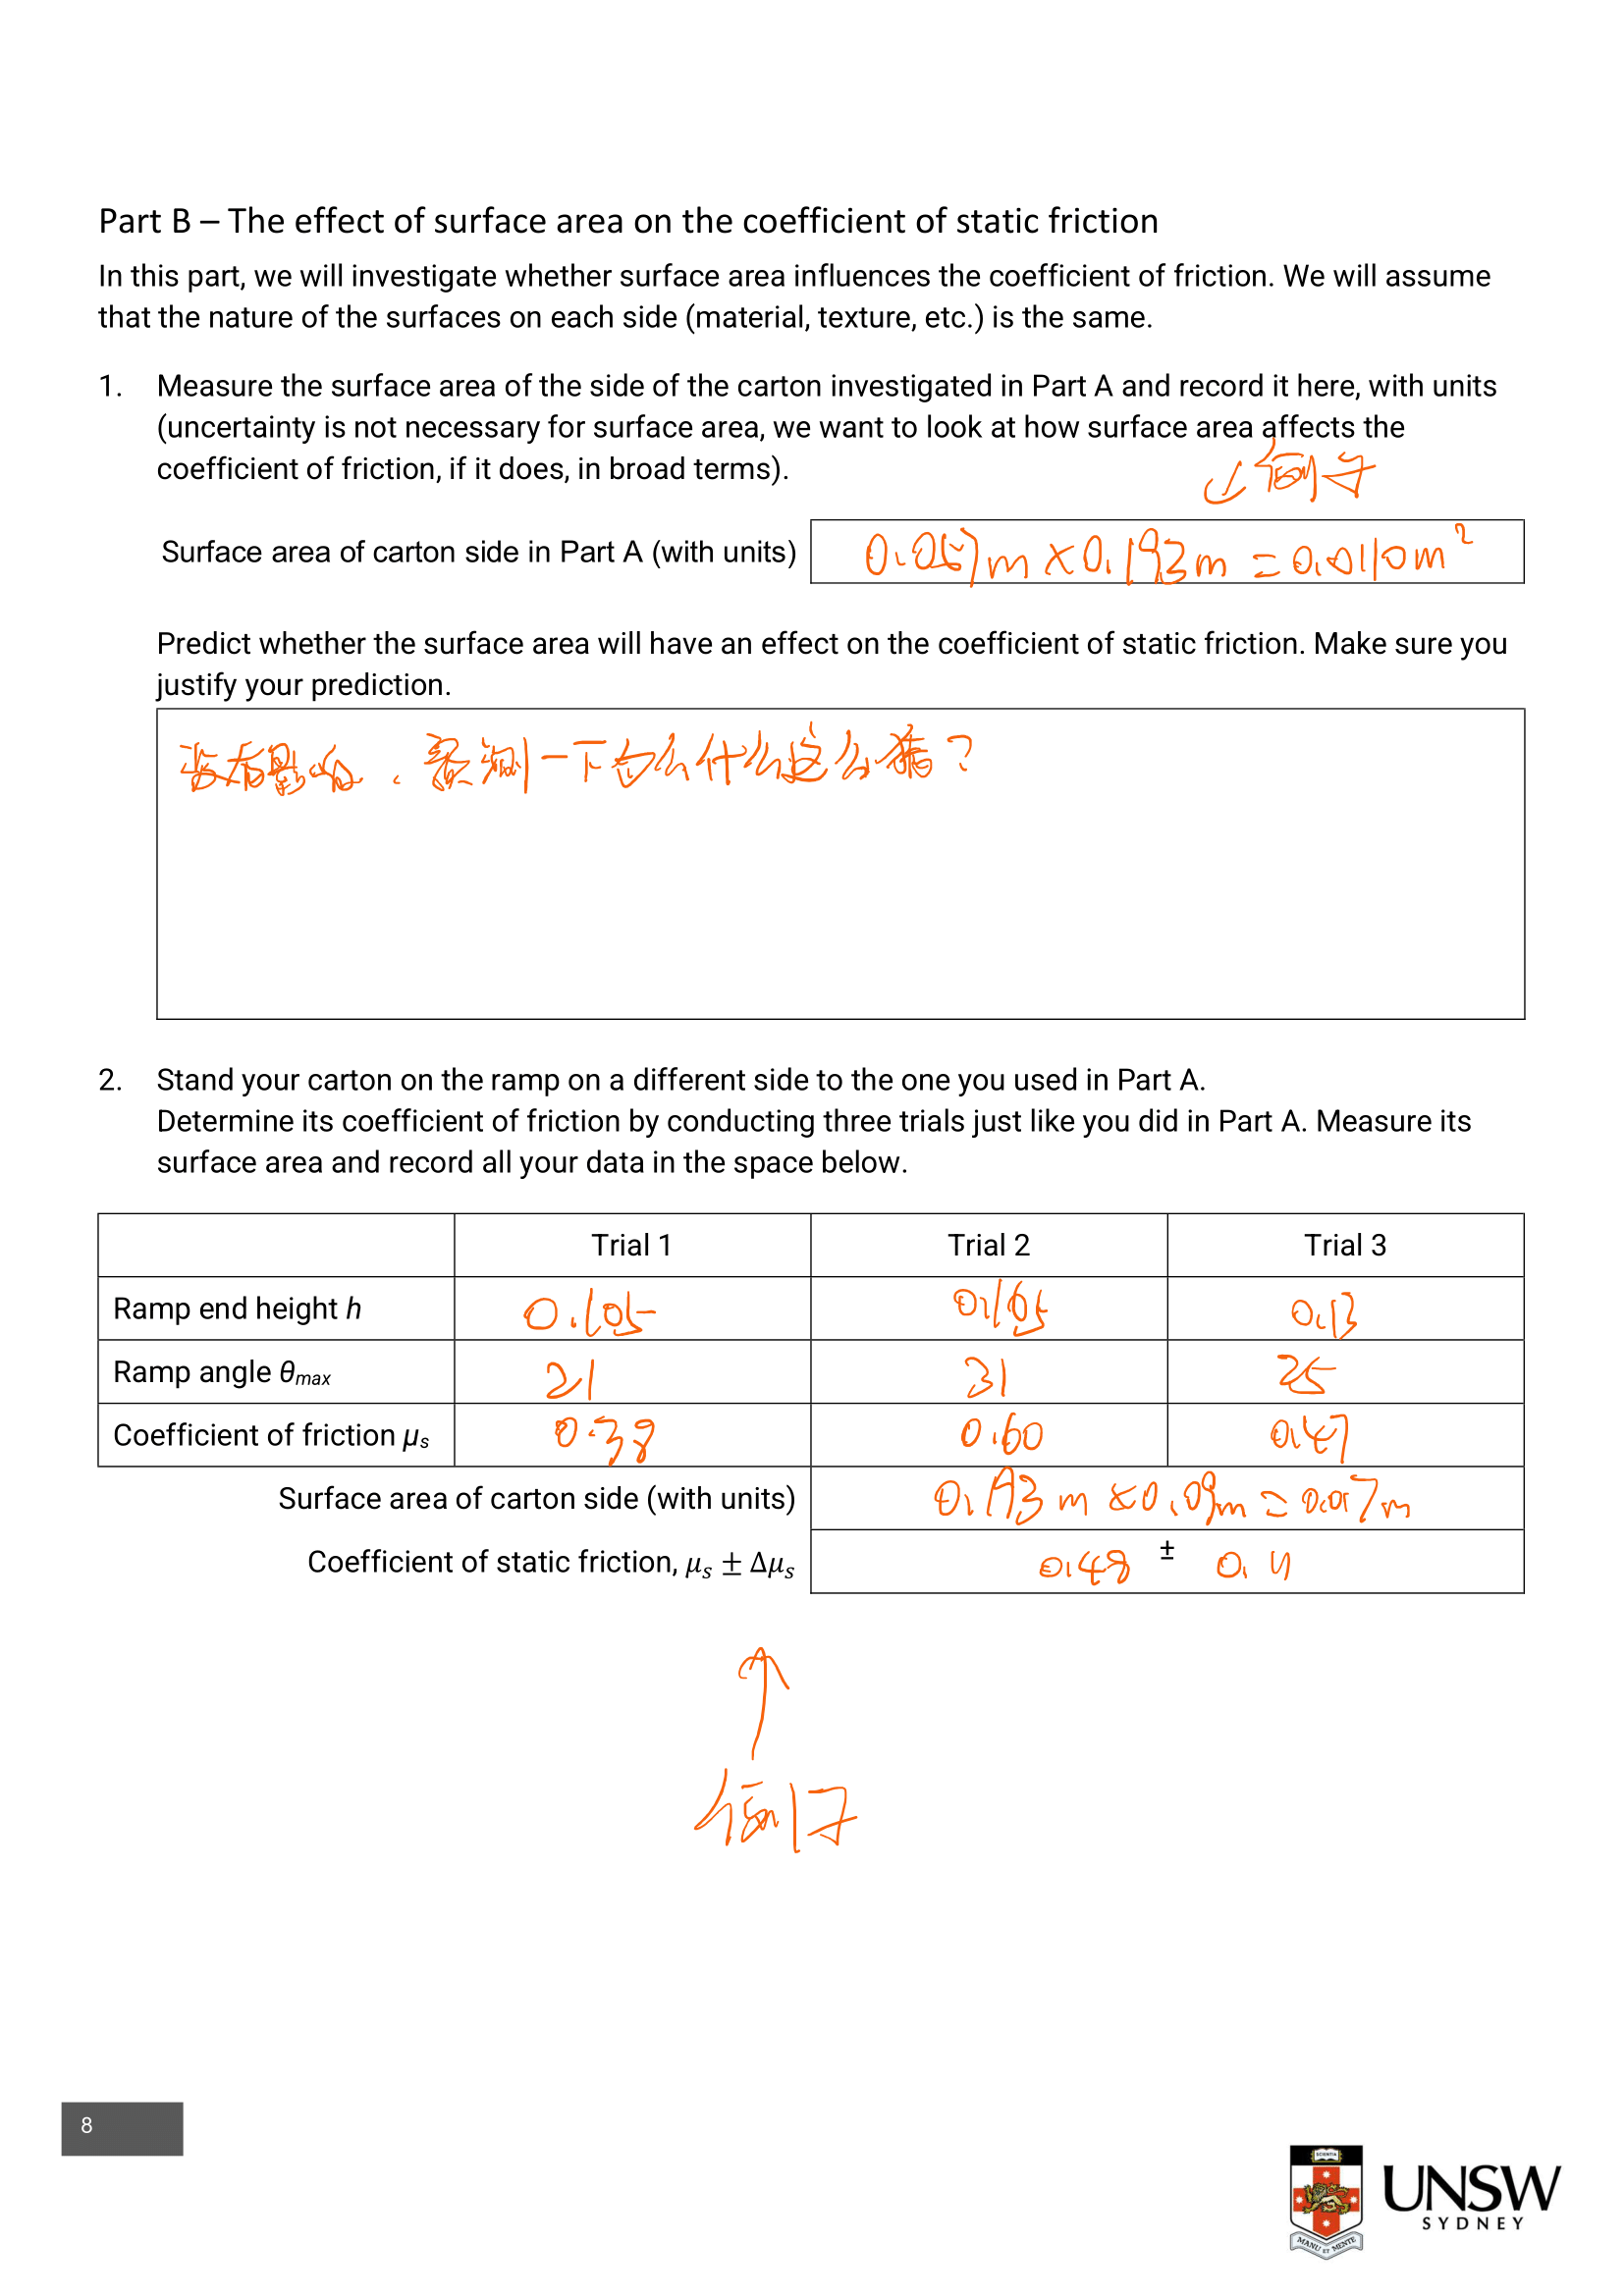 Part B – The effect of surface area on the coefficient of static friction
In this part, we will investigate whether surface area influences the coefficient of friction. We will assume
that the nature of the surfaces on each side (material, texture, etc.) is the same.
1. Measure the surface area of the side of the carton investigated in Part A and record it here, with units
(uncertainty is not necessary for surface area, we want to look at how surface area affects the
coefficient of friction, if it does, in broad terms).
↙例子
Surface area of carton side in Part A (with units) 0.057m×0.193m=0.0110m²
Predict whether the surface area will have an effect on the coefficient of static friction. Make sure you
justify your prediction.
没有影响。预测一下为什么这么猜?
2. Stand your carton on the ramp on a different side to the one you used in Part A.
Determine its coefficient of friction by conducting three trials just like you did in Part A. Measure its
surface area and record all your data in the space below.
Trial 1 Trial 2 Trial 3
Ramp end height h 0.105 0.165 0.13
Ramp angle θmax 21 31 25
Coefficient of friction μs 0.38 0.60 0.47
Surface area of carton side (with units) 0.193m×0.09m=0.017m
Coefficient of static friction, μs ± Δμs 0.48 ± 0.11
↑
例子
8
SCIENTIA
MANU ET MENTE
UNSW
SYDNEY